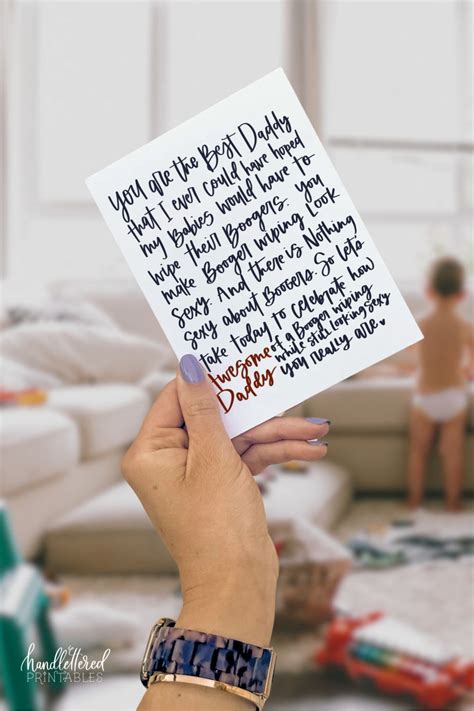 You are the Best Daddy
that I ever could have hoped
my Babies would have to
wipe their Boogers. You
make Booger wiping Look
sexy. And there is Nothing
sexy about Boogers. So let's
take today to celebrate how
Awesome of a Booger wiping
Daddy while still looking sexy
you really are.
handlettered
PRINTABLES